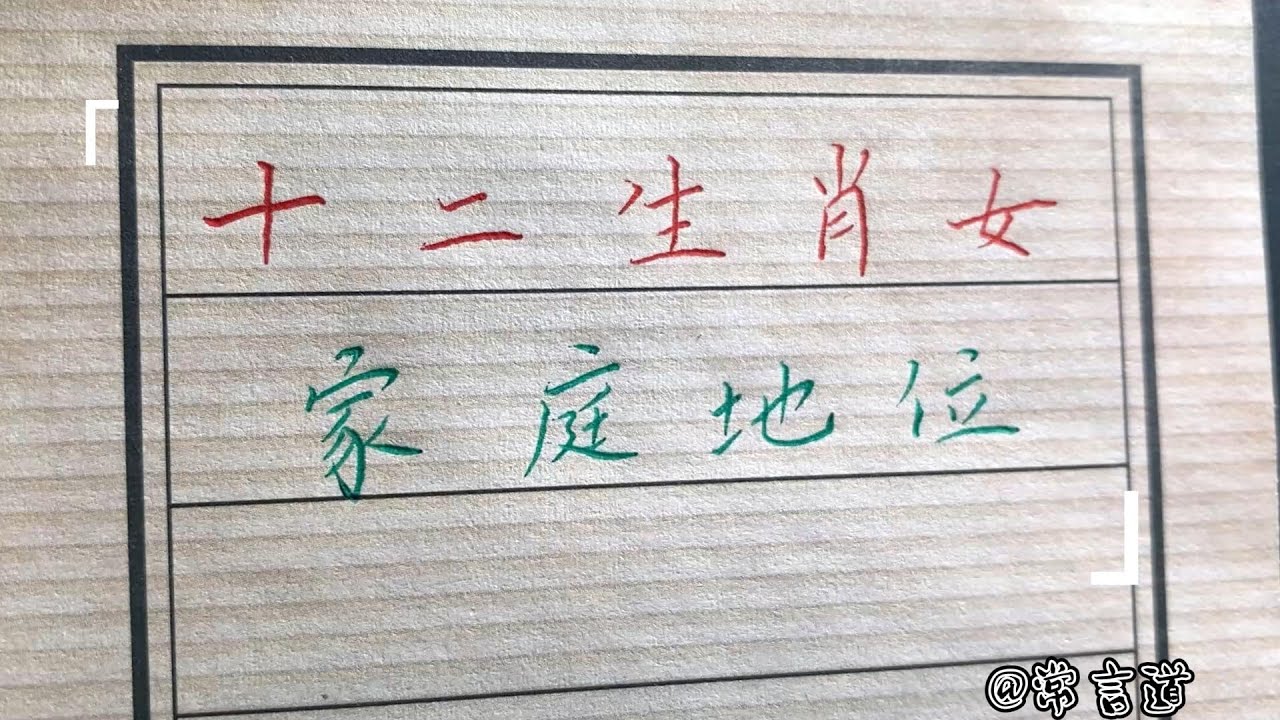 十二生肖女
家庭地位
@常言道